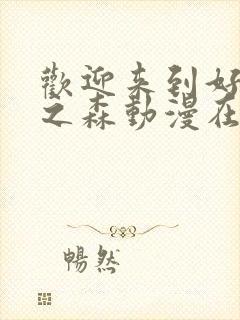 歡迎来到好
之森動漫在
暢然